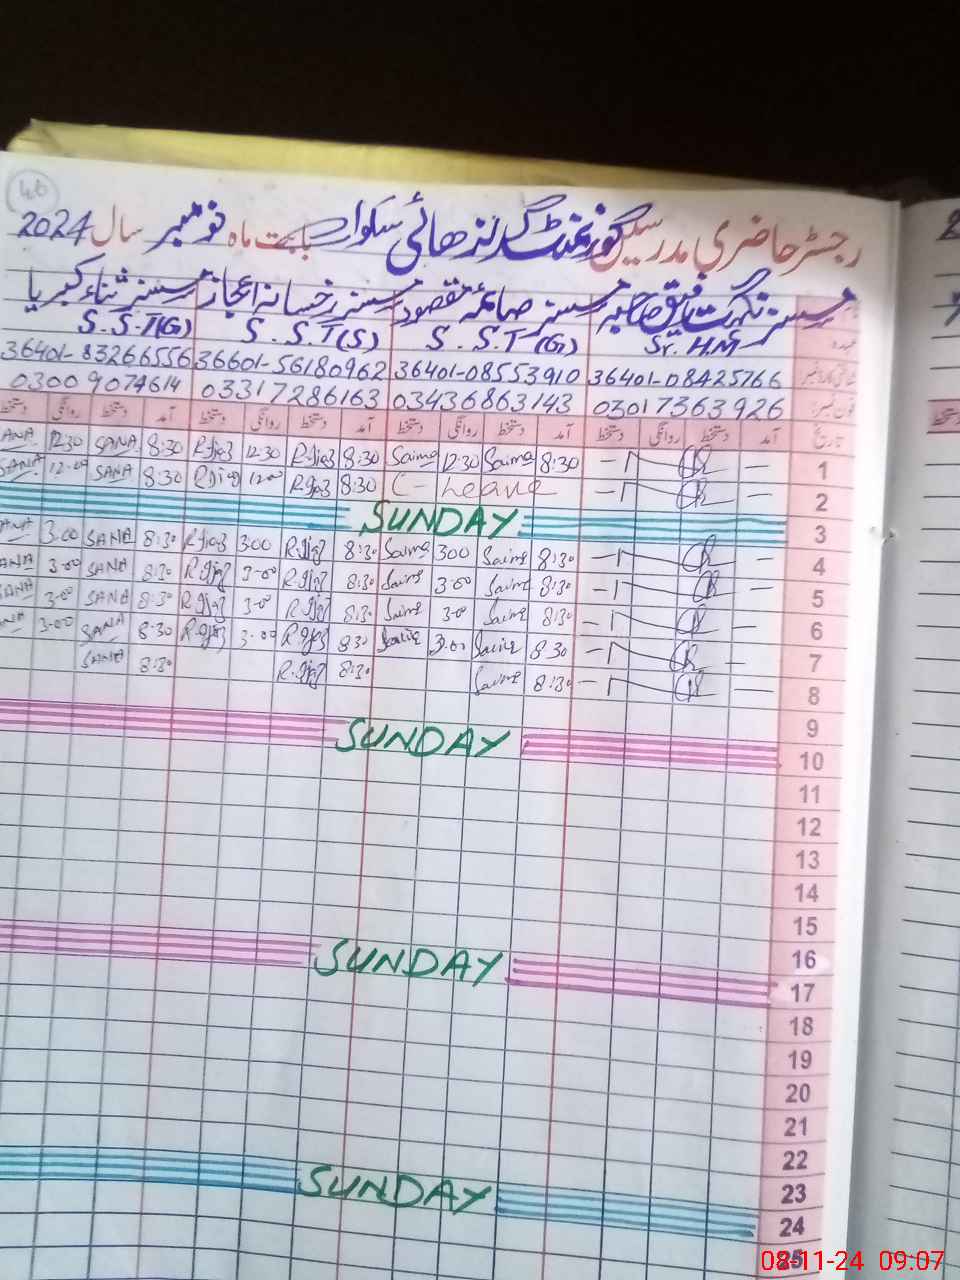 46
رجسٹر حاضری مدرسین گورنمنٹ گرلز ھائی سکول بابت ماہ نومبر سال 2024
مسز نگہت فایق صاحبہ مسز صائمہ مقصود مسز رخسانہ اعجاز مسز ثناء کبریا
عہدہ Sr. H.M S. S.T (G) S. S.T (S) S. S.T (G)
36401-08425766 36401-08553910 36601-56180962 36401-83266556
فون نمبر: 03017363926 03436863143 03317286163 03009074614
تاریخ آمد دستخط روانگی دستخط آمد دستخط روانگی دستخط آمد دستخط روانگی دستخط آمد دستخط روانگی دستخط
1 — — 8:30 Saima 12:30 Saima 8:30 R.Jiaz 12:30 R.Jiaz 8:30 SANA 12:30 ANA
2 — — C- Leave 8:30 R.Jiaz 12:00 R.Jiaz 8:30 SANA 12:00 SANA
3 SUNDAY
4 — — 8:30 Saima 3:00 Saima 8:30 R.Jiaz 3:00 R.Jiaz 8:30 SANA 3:00 ANA
5 — — 8:30 Saima 3-00 Saima 8:30 R.Jiaz 3-00 R.Jiaz 8:30 SANA 3-00 ANA
6 — 8:30 Saima 3-00 Saima 8:30 R.Jiaz 3-00 R.Jiaz 8:30 SANA 3-00 SANA
7 — — 8:30 Saima 3:00 Saima 8:30 R.Jiaz 3:00 R.Jiaz 8:30 SANA 3:00 NA
8 — — 8:30 Saima 8:30 R.Jiaz 8:30 SANA
9
10 SUNDAY
11
12
13
14
15
16
17 SUNDAY
18
19
20
21
22
23
24 SUNDAY
25
08-11-24 09:07